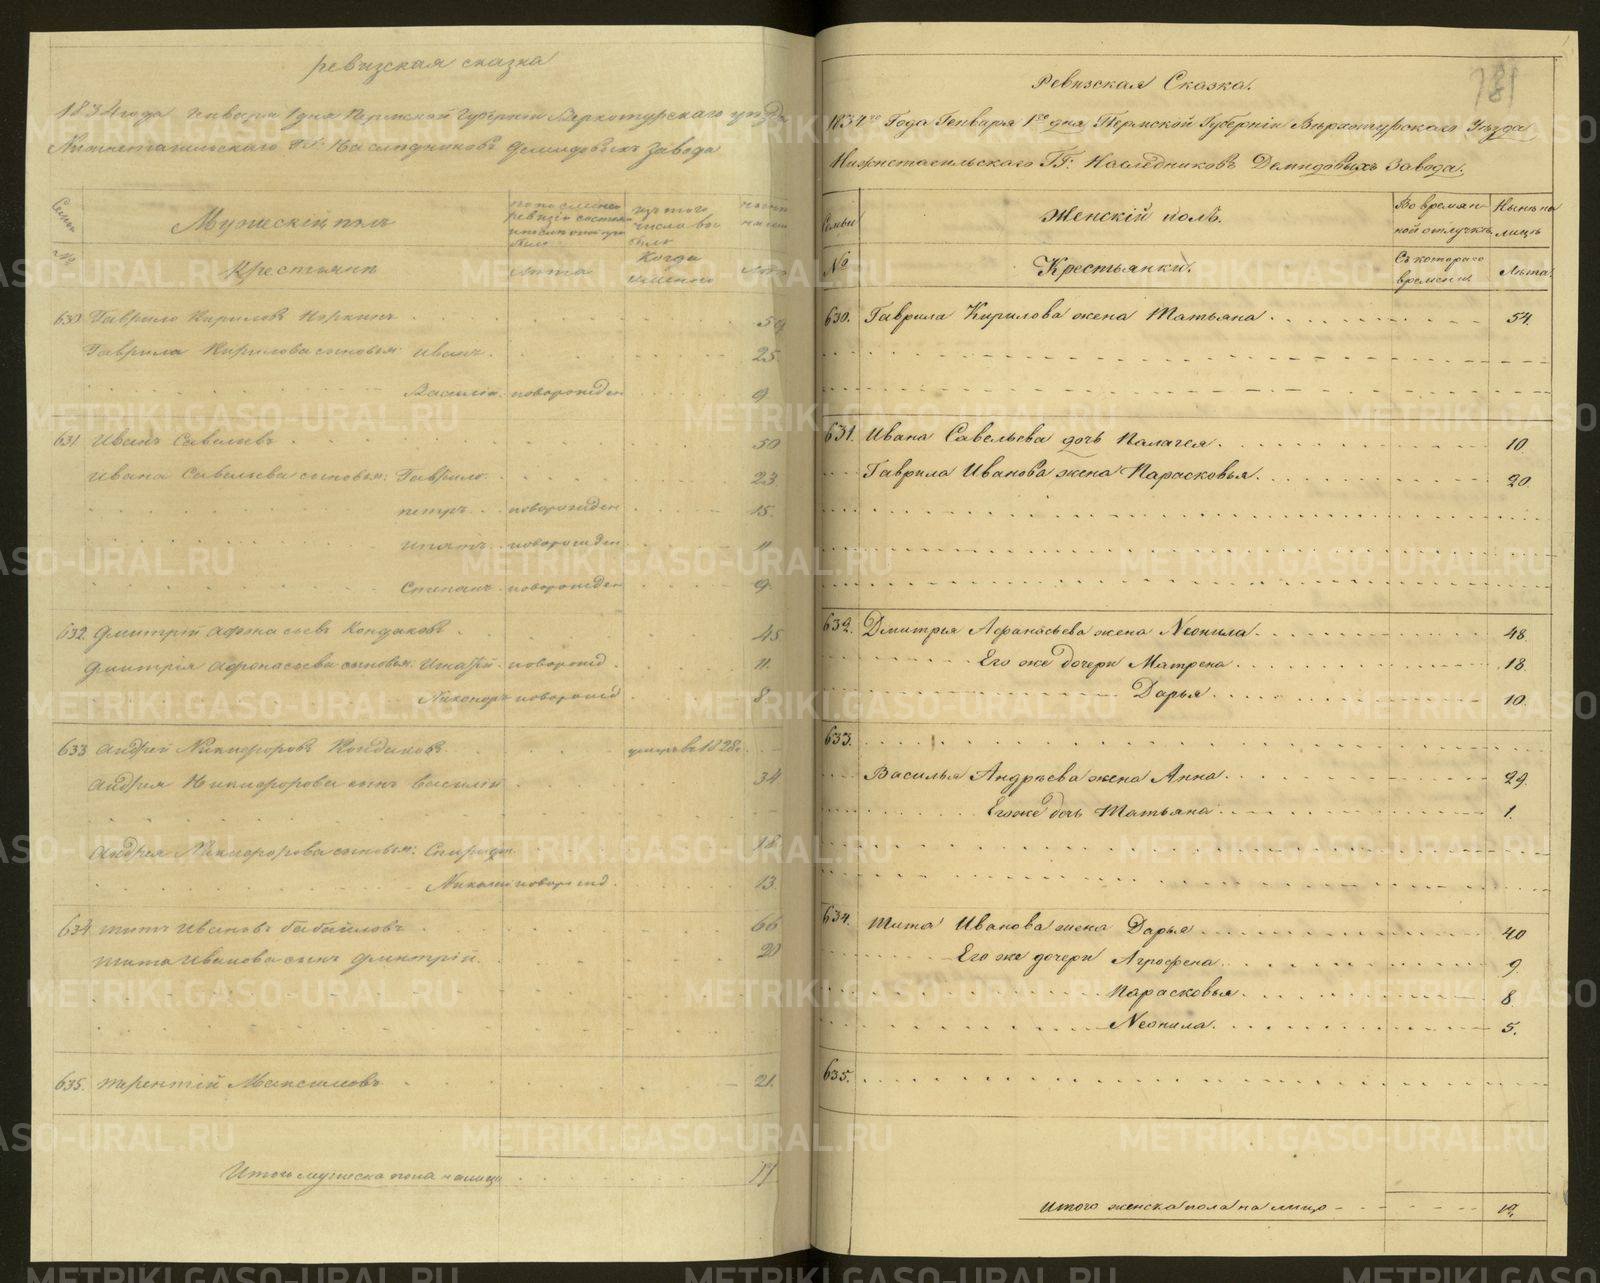 ревизская сказка
1834 года Января 1 дня Пермской Губернии Верхотурскаго уезда
Нижнетагильскаго ГГ: Наследниковъ Демидовыхъ Завода
Семьи
№
Мужескій полъ
Крестьяне
по последней ревизіи состояло
Лета
изъ того числа выбыло
Когда именно
ныне на лицо
Лета
630 Гаврило Кириловъ 50
Гаврила Кирилова сыновья: Иванъ. 25
Василій. новорожден 9
631 Иванъ Савельевъ 50
Ивана Савельева сыновья: Гаврило 23
петръ новорожден 15.
Игнатъ новорожден 11
Степанъ новорожден 9
632. Дмитрій Афонасьевъ Кондаковъ 45
Дмитрія Афонасьева сыновья: новорожд 11.
Никоноръ новорожд 8
633 Андрей Никифоровъ Кондаковъ умеръ въ 1828.
Андрея Никифорова сынъ Василій 34
Андрея Никифорова сыновья: Спиридон 18
Николай новорожд 13.
634 титъ Ивановъ бабайловъ 66
тита Иванова сынъ Дмитрій 20
635. терентій Максимовъ 21.
Итого мужеска пола на лицо 17
181
Ревизская Сказка.
1834го Года Генваря 1го дня Пермской Губерніи Верхотурскаго Уезда
Нижнетагильскаго ГГ: Наследниковъ Демидовыхъ Завода.
Семьи
№
Женскій полъ.
Крестьянки.
Во времянной отлучке
Съ котораго времени
Ныне на лицо
Лета.
630. Гаврила Кирилова жена Татьяна 54.
631. Ивана Савельева дочь Палагея 10
Гаврила Иванова жена Парасковья. 20.
632. Дмитрья Афанасьева жена Неонила 48.
Его же дочери Матрена 18.
Дарья 10.
633.
Василья Андреева жена Анна 29.
Его же дочь Татьяна 1.
634. Тита Иванова жена Дарья 40
Его же дочери Агрофена 9.
Парасковья. 8.
Неонила. 5.
635.
Итого женска пола на лицо 12.
METRIKI.GASO-URAL.RU